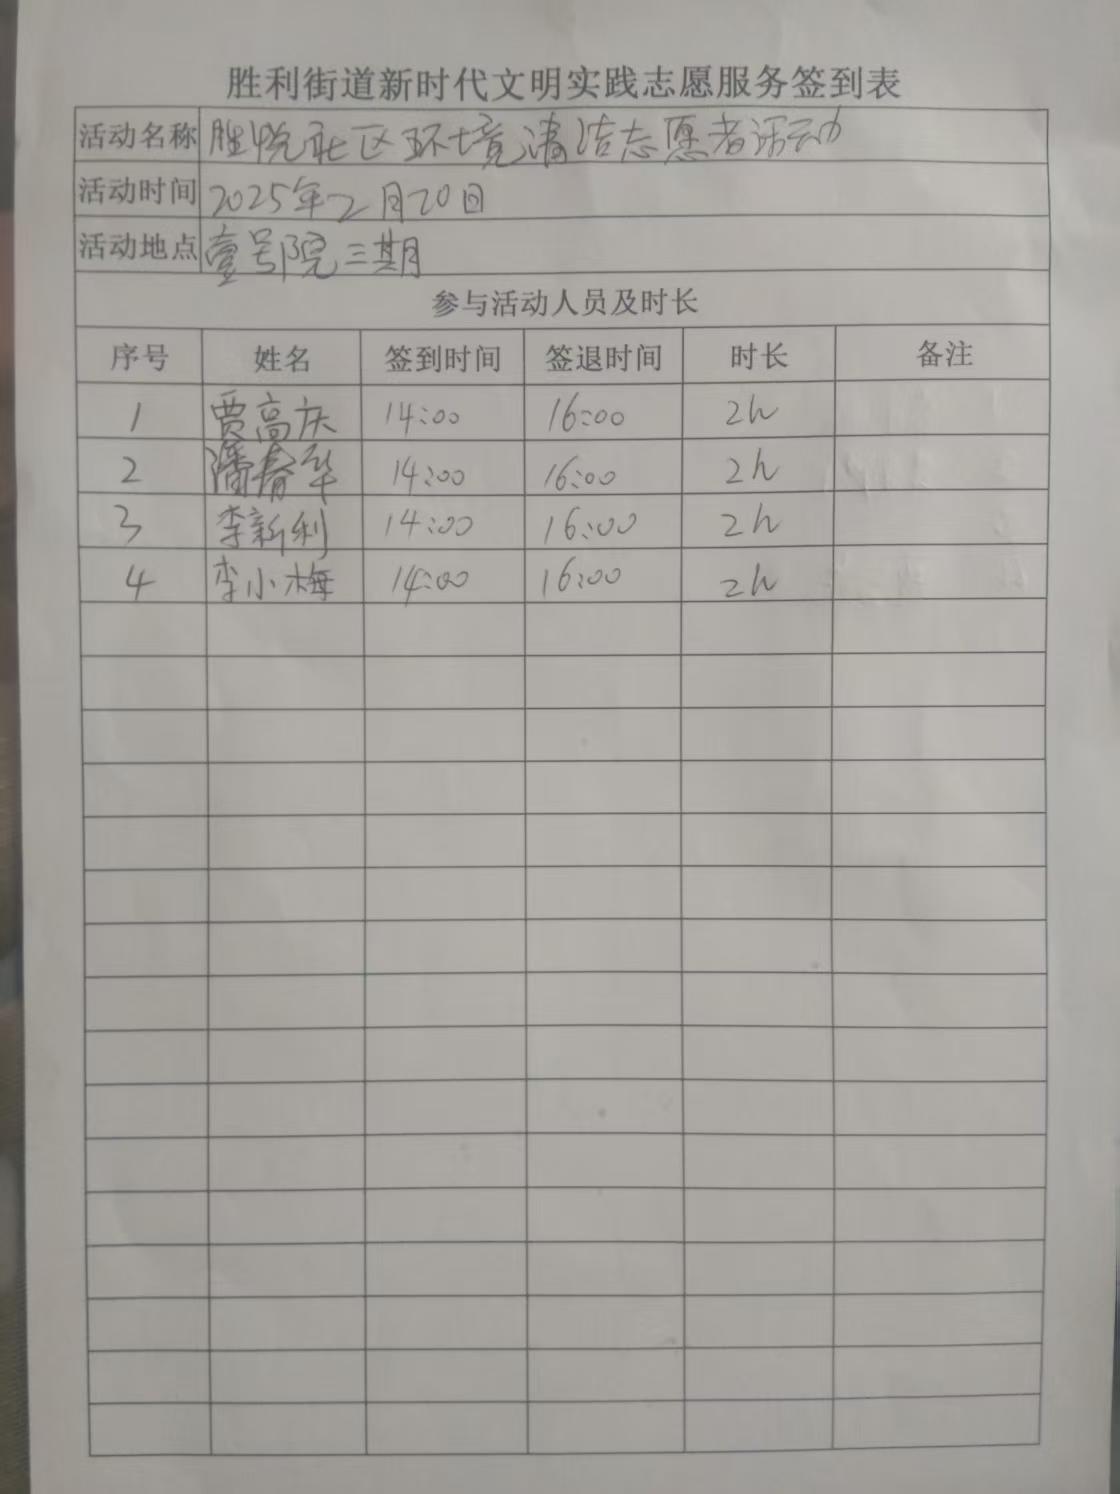 胜利街道新时代文明实践志愿服务签到表
活动名称 胜悦社区环境清洁志愿者活动
活动时间 2025年2月20日
活动地点 壹号院三期
参与活动人员及时长
序号 姓名 签到时间 签退时间 时长 备注
1 贾高庆 14:00 16:00 2h
2 潘春华 14:00 16:00 2h
3 李新利 14:00 16:00 2h
4 李小梅 14:00 16:00 2h